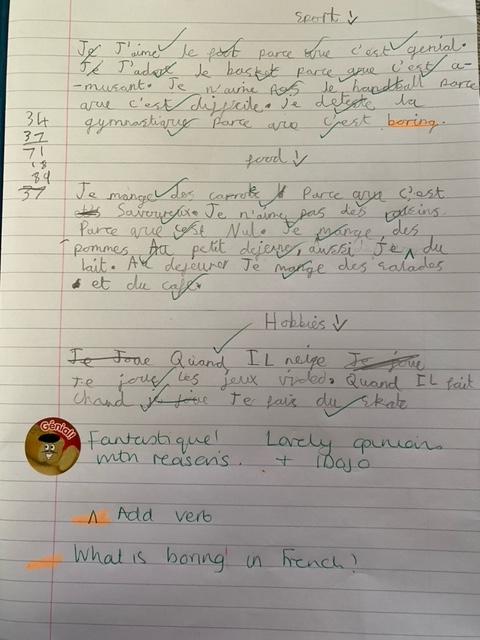 Sport
Je J'aime le foot parce que c'est genial.
Je J'adore le basket parce que c'est a-
-musant. Je n'aime pas le handball parce
que c'est difficile. Je deteste la
gymnastique parce que c'est boring.
34
37
71
18
84
37
food
Je mange des carrots Parce que c'est
Savoureux. Je n'aime pas des raisins
Parce que c'est Nul. Je mange des
pommes Au petit dejeuner, aussi Je ^ du
lait. Au dejeuner Je mange des salades
et du café.
Hobbies
Je Joue Quand IL neige Je joue
Je joue les jeux video. Quand IL fait
Chaud je joue Je fais du skate
Génial!
Fantastique! Lovely opinions
with reasons. + 1Dojo
^ Add verb
What is boring in French?